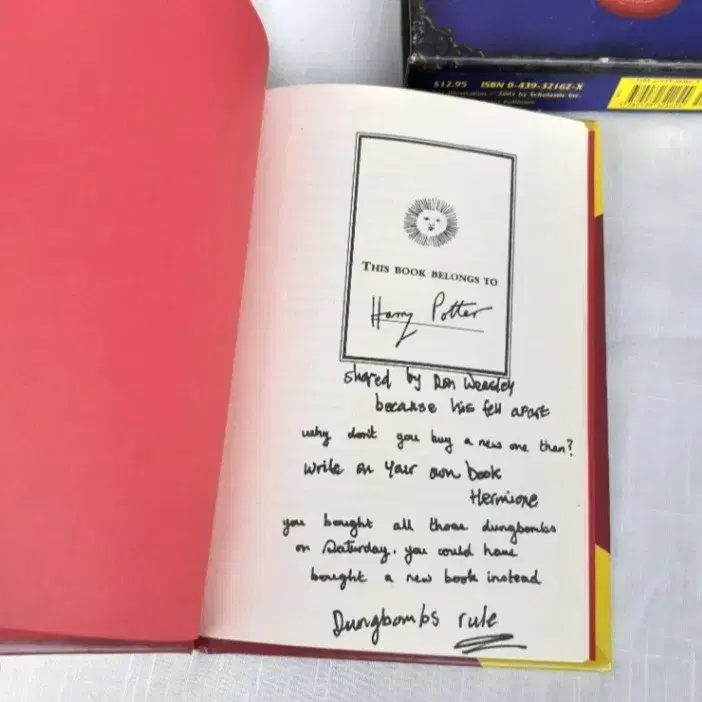 $12.95 ISBN 0-439-32162-X
THIS BOOK BELONGS TO
Harry Potter
shared by Ron Weasley
because his fell apart
why don't you buy a new one then?
write on your own book
Hermione
you bought all those dungbombs
on Saturday. you could have
bought a new book instead
Dungbombs rule